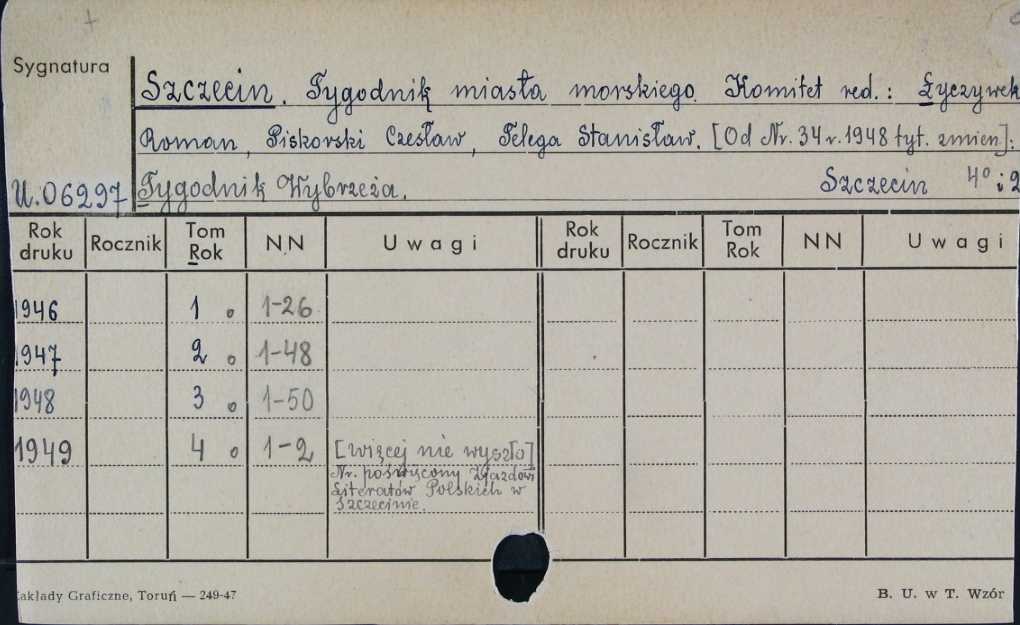 Sygnatura
Szczecin. Tygodnik miasta morskiego. Komitet red.: Łyczywek
Roman, Piskorski Czesław, Telega Stanisław. [Od Nr. 34 r. 1948 tyt. zmien]:
U.06297 Tygodnik Wybrzeża. Szczecin 4° i 2
Rok druku Rocznik Tom Rok NN Uwagi Rok druku Rocznik Tom Rok NN Uwagi
1946 1 o 1-26
1947 2 o 1-48
1948 3 o 1-50
1949 4 o 1-2 [więcej nie wyszło]
Nr. poświęcony Zjazdowi
Literatów Polskich w
Szczecinie.
Zakłady Graficzne, Toruń — 249-47 B. U. w T. Wzór